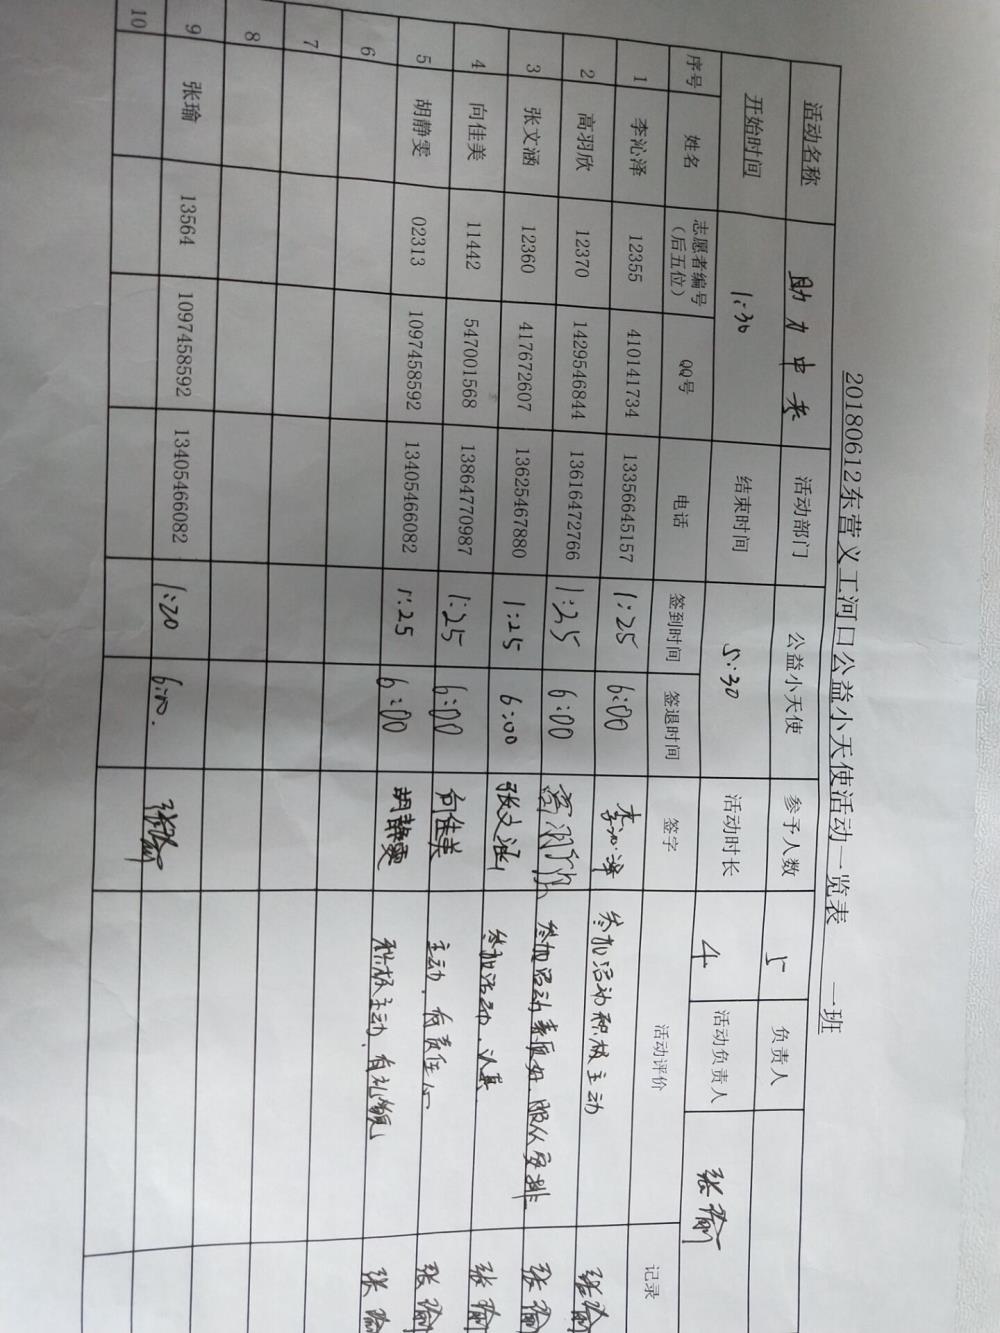 20180612东营义工河口公益小天使活动一览表 一班
活动名称 助力中考 活动部门 公益小天使 参予人数 5 负责人
开始时间 1:30 结束时间 5:30 活动时长 4 活动负责人 张瑜
序号 姓名 志愿者编号（后五位） QQ号 电话 签到时间 签退时间 签字 活动评价 记录
1 李沁泽 12355 410141734 13356645157 1:25 6:00 李沁泽 参加活动积极主动 张瑜
2 高羽欣 12370 1429546844 13616472766 1:25 6:00 高羽欣 参加活动表现好.服从安排 张瑜
3 张文涵 12360 417672607 13625467880 1:25 6:00 张文涵 参加活动.认真 张瑜
4 向佳美 11442 547001568 13864770987 1:25 6:00 向佳美 主动.有责任心 张瑜
5 胡静雯 02313 1097458592 13405466082 1:25 6:00 胡静雯 积极主动.有礼貌 张瑜
6
7
8
9 张瑜 13564 1097458592 13405466082 1:20 6:00. 张瑜
10